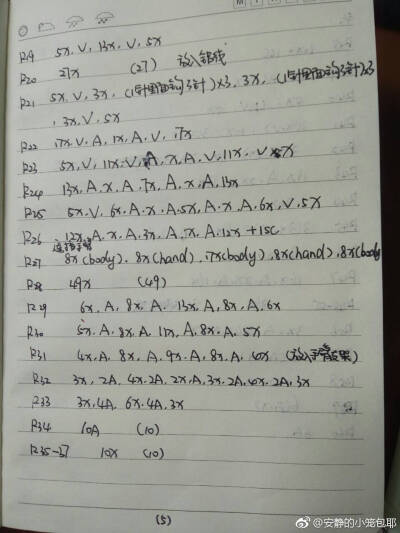 R19 5x, V, 13x, V, 5x
R20 27x (27) 放入
R21 5x, V, 3x, (1针里面钩3针)x3, 3x, (1针里面钩3针)x3
, 3x, V, 5x
R22 17x, V, A, 1x, A, V, 17x
R23 5x, V, 11x, V, A, x, A, V, 11x, V, 5x
R24 13x, A, x, A, 7x, A, x, A, 13x
R25 5x, V, 6x, A, x, A, 5x, A, x, A, 6x, V, 5x
R26 12x, A, x, A, 3x, A, x, A, 12x + 1sc
连接手臂
R27 8x(body), 8x(hand), 17x(body), 8x(hand), 8x(body
R28 49x (49)
R29 6x, A, 8x, A, 13x, A, 8x, A, 6x
R30 5x, A, 8x, A, 11x, A, 8x, A, 5x
R31 4x, A, 8x, A, 9x, A, 8x, A, 4x
R32 3x, 2A, 4x, 2A, 2x, A, 3x, 2A, 4x, 2A, 3x
R33 3x, 4A, 6x, 4A, 3x
R34 10A (10)
R35-37 10x (10)
(5)
@安静的小笼包耶